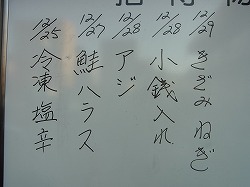 12/29 きざみねぎ
12/28 小銭入れ
12/28 アジ
12/27 鮭ハラス
12/25 冷凍塩辛